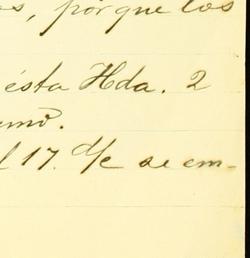 os, porque los
ésta Hda. 2
l 17. d/c se em-